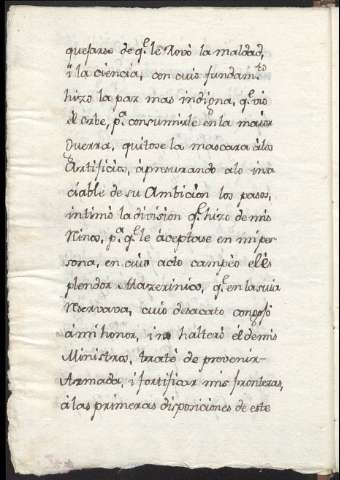 quejarse de q.e le Rovò la maldad,
i la ciencia, con cuio fundam.to
hizo la paz mas indigna, q.e vio
el orbe, p.a consumirle en la maior
Guerra, quitose la mascara à los
Artificios, apresurando alo insa
ciable de su Ambicion los pasos,
intimò la division q.e hizo de mis
Reinos, p.a q.e le aceptase en mi per
sona, en cuio acto campeò el es
plendor Maxerinico, q.e en la suia
Reservava, cuio desacato
à mi honor, i no halterò el de mis
Ministros, tratè de prevenir
Armada, i fortificar mis fronteras,
à las primeras disposiciones de este